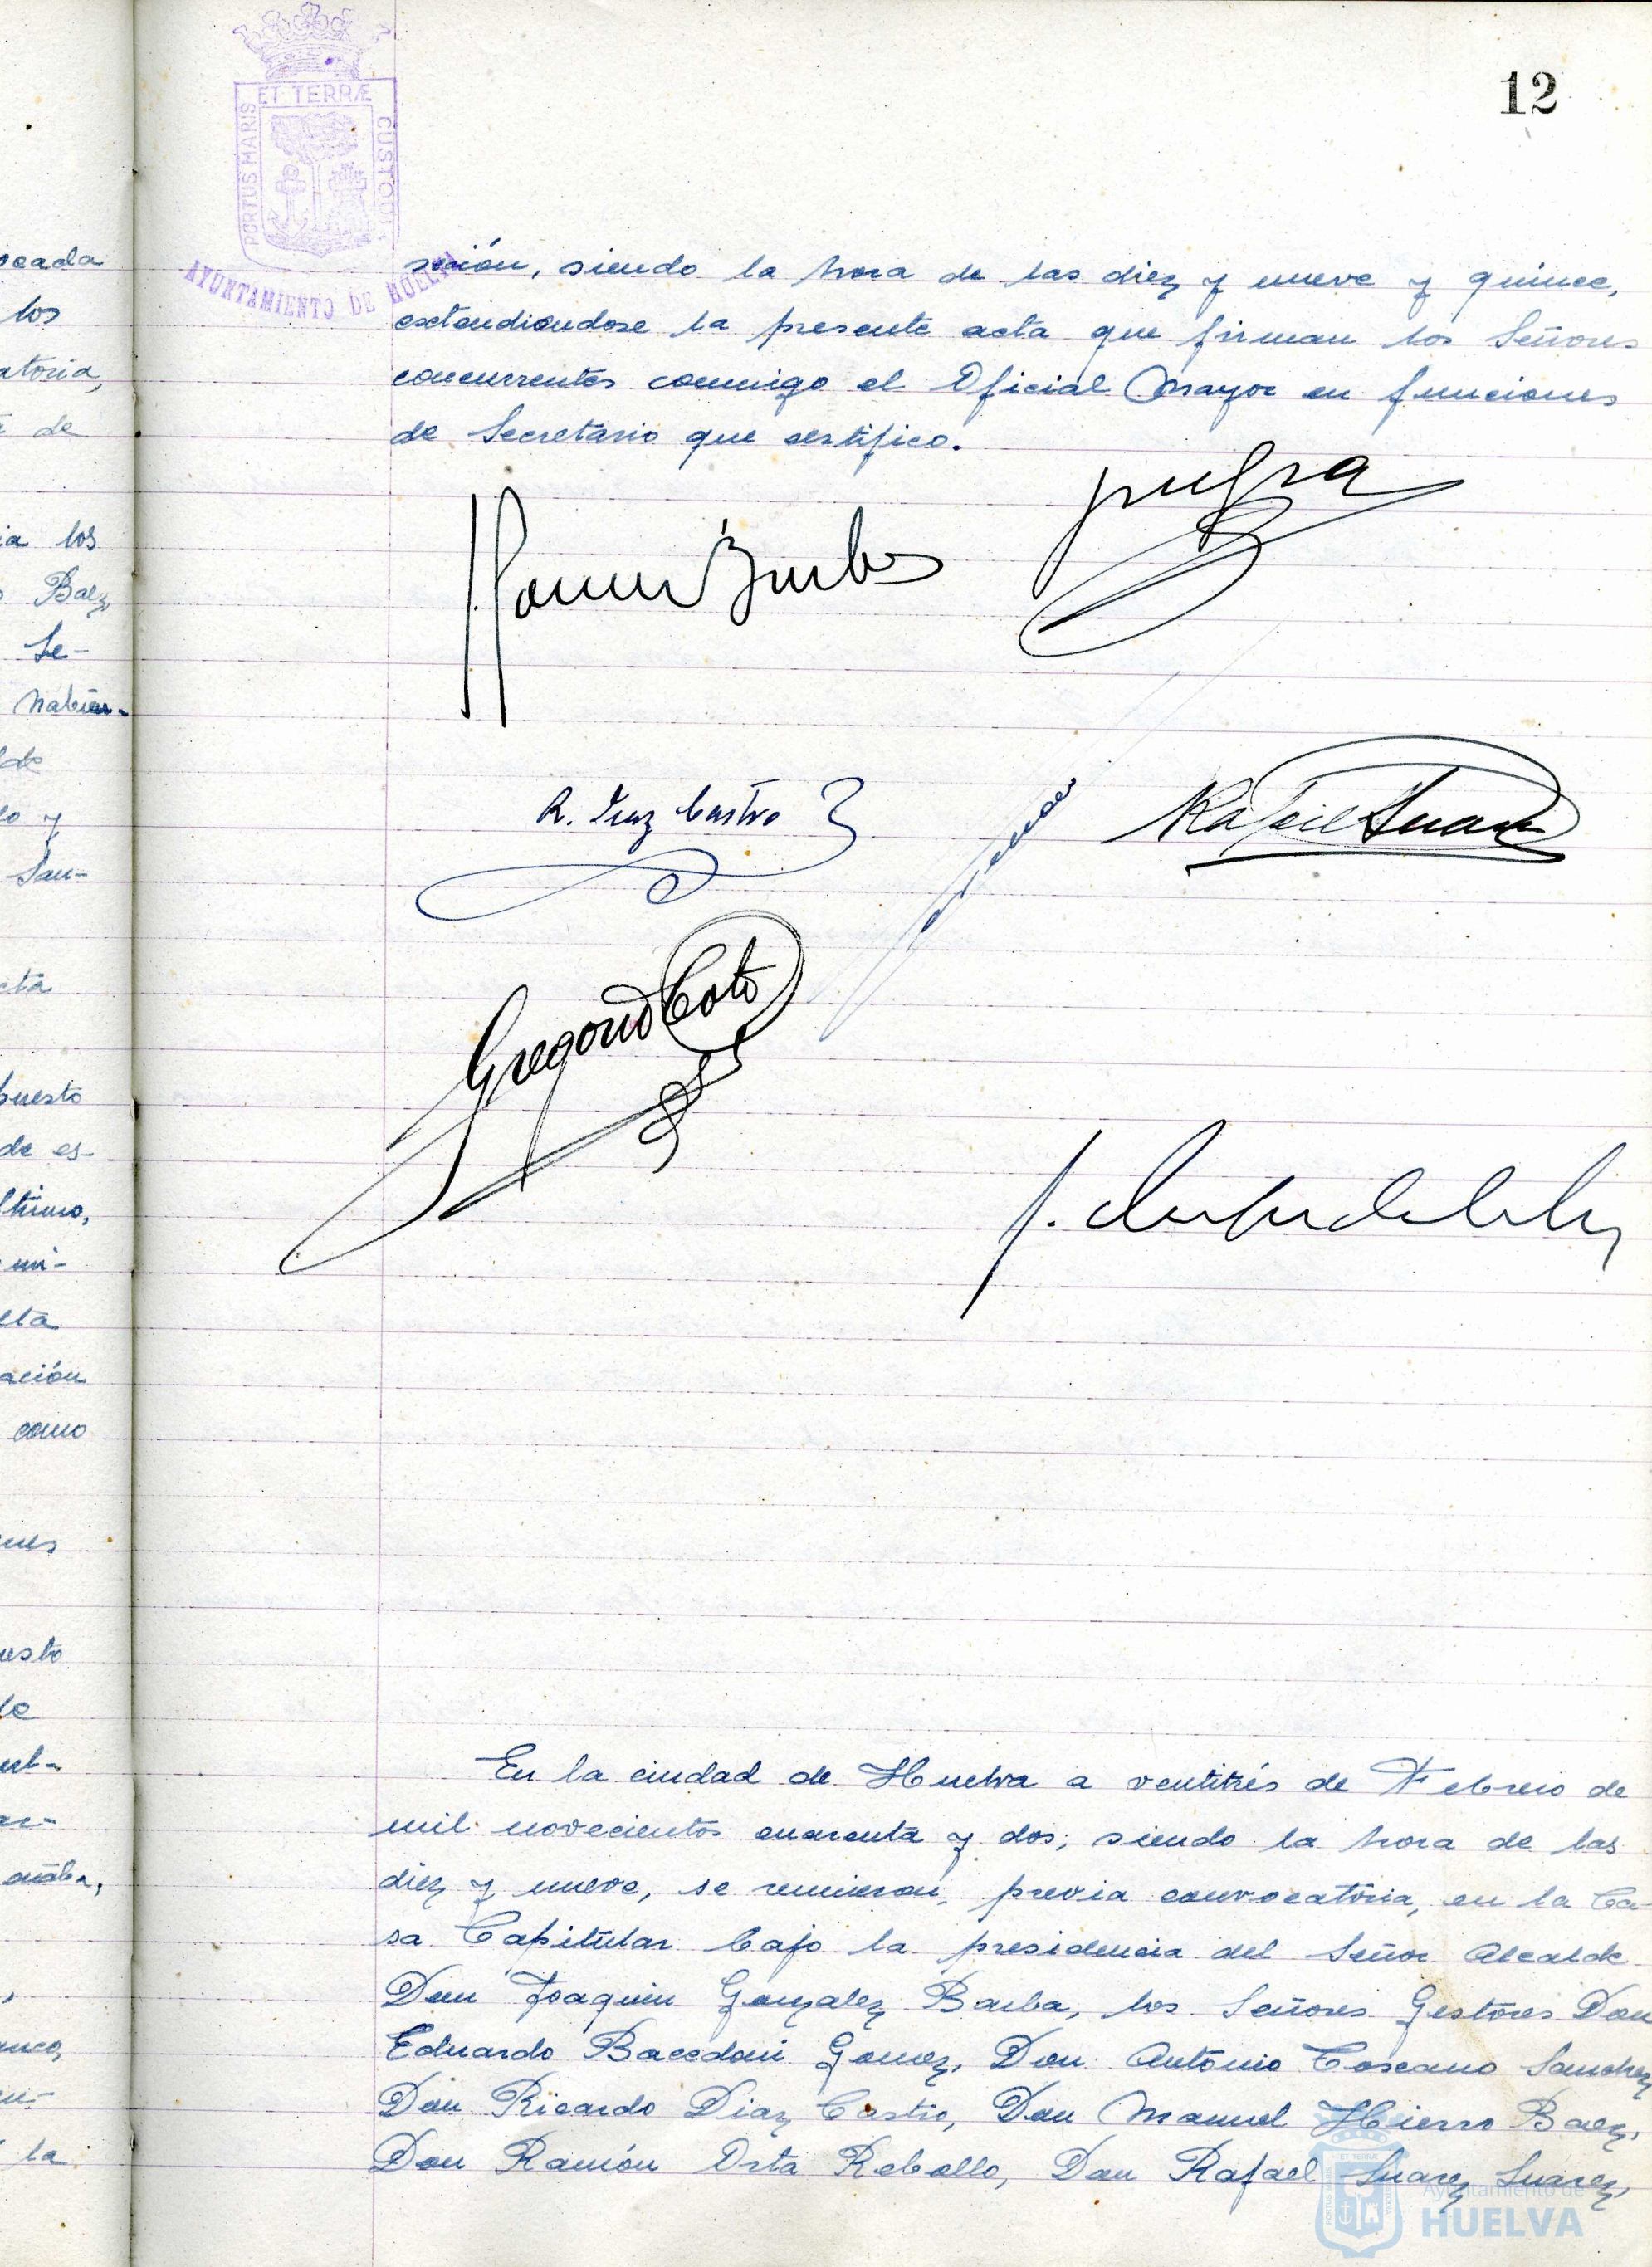 12
ET TERRÆ
PORTUS MARIS
CUSTODI
AYUNTAMIENTO DE HUELVA
sesión, siendo la hora de las diez y nueve y quince,
extendiendose la presente acta que firman los Señores
concurrentes conmigo el Oficial Mayor en funciones
de Secretario que certifico.
R. Diaz Castro
Rafael Suarez
Gregorio Coto
En la ciudad de Huelva a ventitrés de Febrero de
mil novecientos cuarenta y dos; siendo la hora de las
diez y nueve, se reunieron, previa convocatoria, en la Ca-
sa Capitular bajo la presidencia del Señor Alcalde
Don Joaquin Gonzalez Barba, los Señores Gestores Don
Eduardo Bacedoni Gomez, Don Antonio Toscano Sanchez
Don Ricardo Diaz Castro, Don Manuel Hierro Baez,
Don Ramón Orta Rebollo, Don Rafael Suarez Suarez,
Ayuntamiento de
HUELVA
ocada
los
atoria,
de
ia los
Baez,
Se-
habien-
de
y
San-
cta
puesto
de es-
ltimo,
mi-
ación
como
nes
esto
la